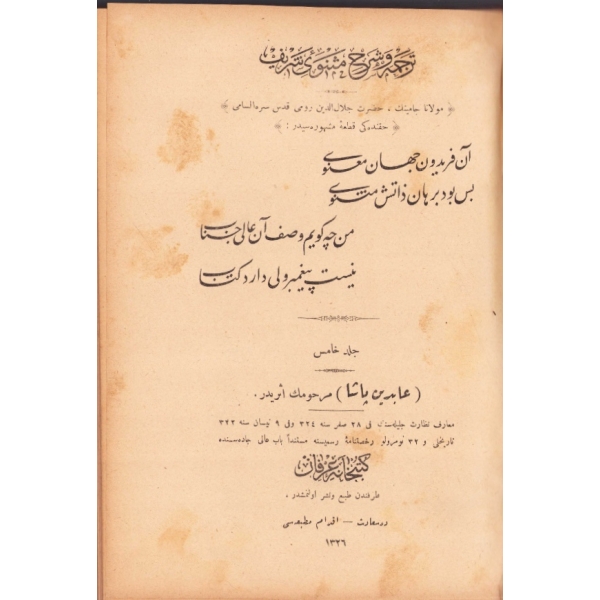 ترجمه وشرح مثنوئ شريف
﴿ مولانا جامينك ، حضرت جلال‌الدين رومى قدس سره‌السامى ﴾
﴿ حقنده‌كى قطعهٔ مشهوره‌سيدر : ﴾
آن فريدون جهان معنوى
بس بود برهان ذاتش مثنوى
من چه گويم وصف آن عالى جناب
نيست پيغمبر ولى دارد كتاب
جلد خامس
( عابدين پاشا ) مرحومك اثريدر .
معارف نظارت جليله‌سنك فى ٢٨ صفر سنه ٣٢٤ وفى ٩ نيسان سنه ٣٢٢
تاريخلى و ٣٢ نومرولو رخصتنامهٔ رسميسنه مستنداً باب عالى جاده‌سنده
كتبخانهٔ عرفان
طرفندن طبع ونشر اولنمشدر .
درسعادت — اقدام مطبعه‌سى
١٣٢٦